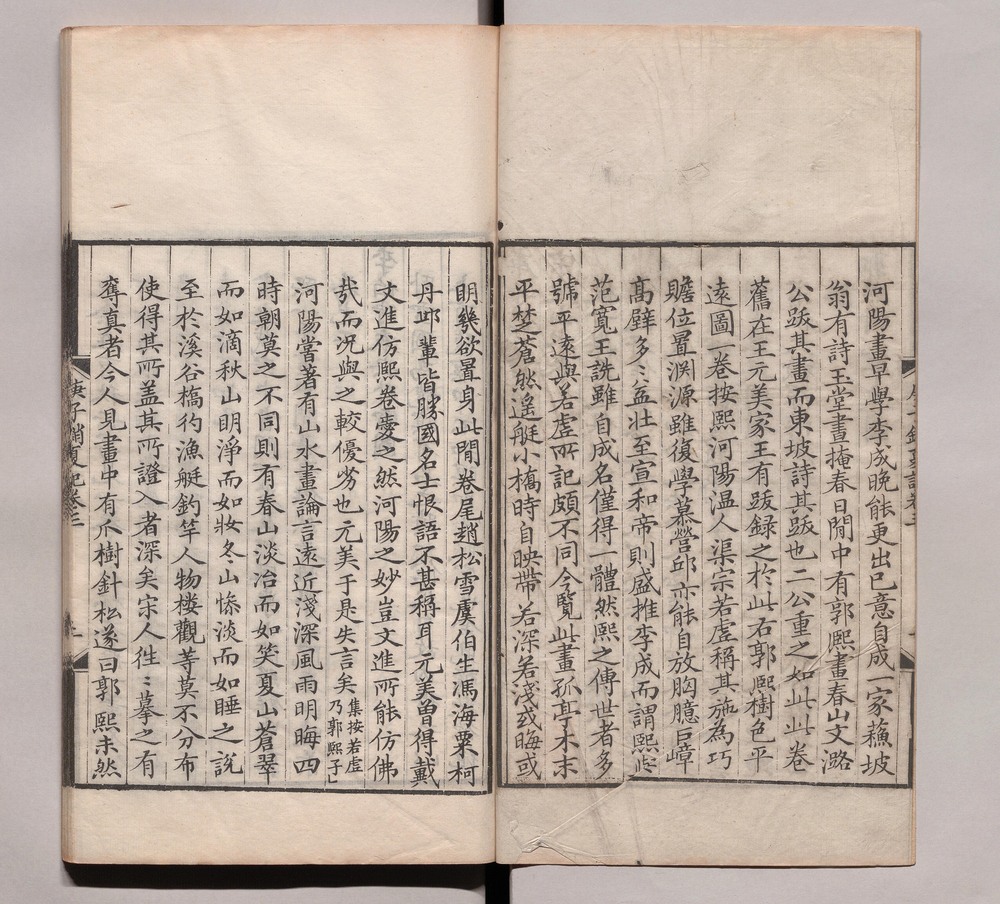 河陽畫早學李成晚能更出己意自成一家蘓坡
翁有詩玉堂畫掩春日閒中有郭熈畫春山文潞
公跋其畫而東坡詩其跋也二公重之如此此卷
舊在王元美家王有跋録之於此右郭熈樹色平
遠圖一卷按熈河陽温人渠宗若虗稱其施為巧
贍位置渊源雖復學慕營邱亦能自放胸臆巨嶂
髙壁多〻益壯至宣和帝則盛推李成而謂熈
范寬王詵雖自成名僅得一體然熈之傳世者多
號平遠與若虗所記頗不同今覽此畫孤亭木末
平楚蒼然遥艇小橋時自映帶若深若淺或晦或
庚子銷夏記卷三
明幾欲置身此閒卷尾趙松雪虞伯生馮海粟柯
丹邱輩皆勝國名士恨語不甚稱耳元美曾得戴
文進仿熈卷愛之然河陽之妙豈文進所能仿佛
㦲而況與之較優劣也元美于是失言矣集按若虗乃郭熈子
河陽嘗著有山水畫論言逺近淺深風雨明晦四
時朝莫之不同則有春山淡冶而如笑夏山蒼翠
而如滴秋山明淨而如妝冬山慘淡而如睡之說
至於溪谷橋彴漁艇釣竿人物楼觀等莫不分布
使得其所盖其所證入者深矣宋人徃〻摹之有
奪真者今人見畫中有爪樹針松遂曰郭熈未然
庚子銷夏記卷三